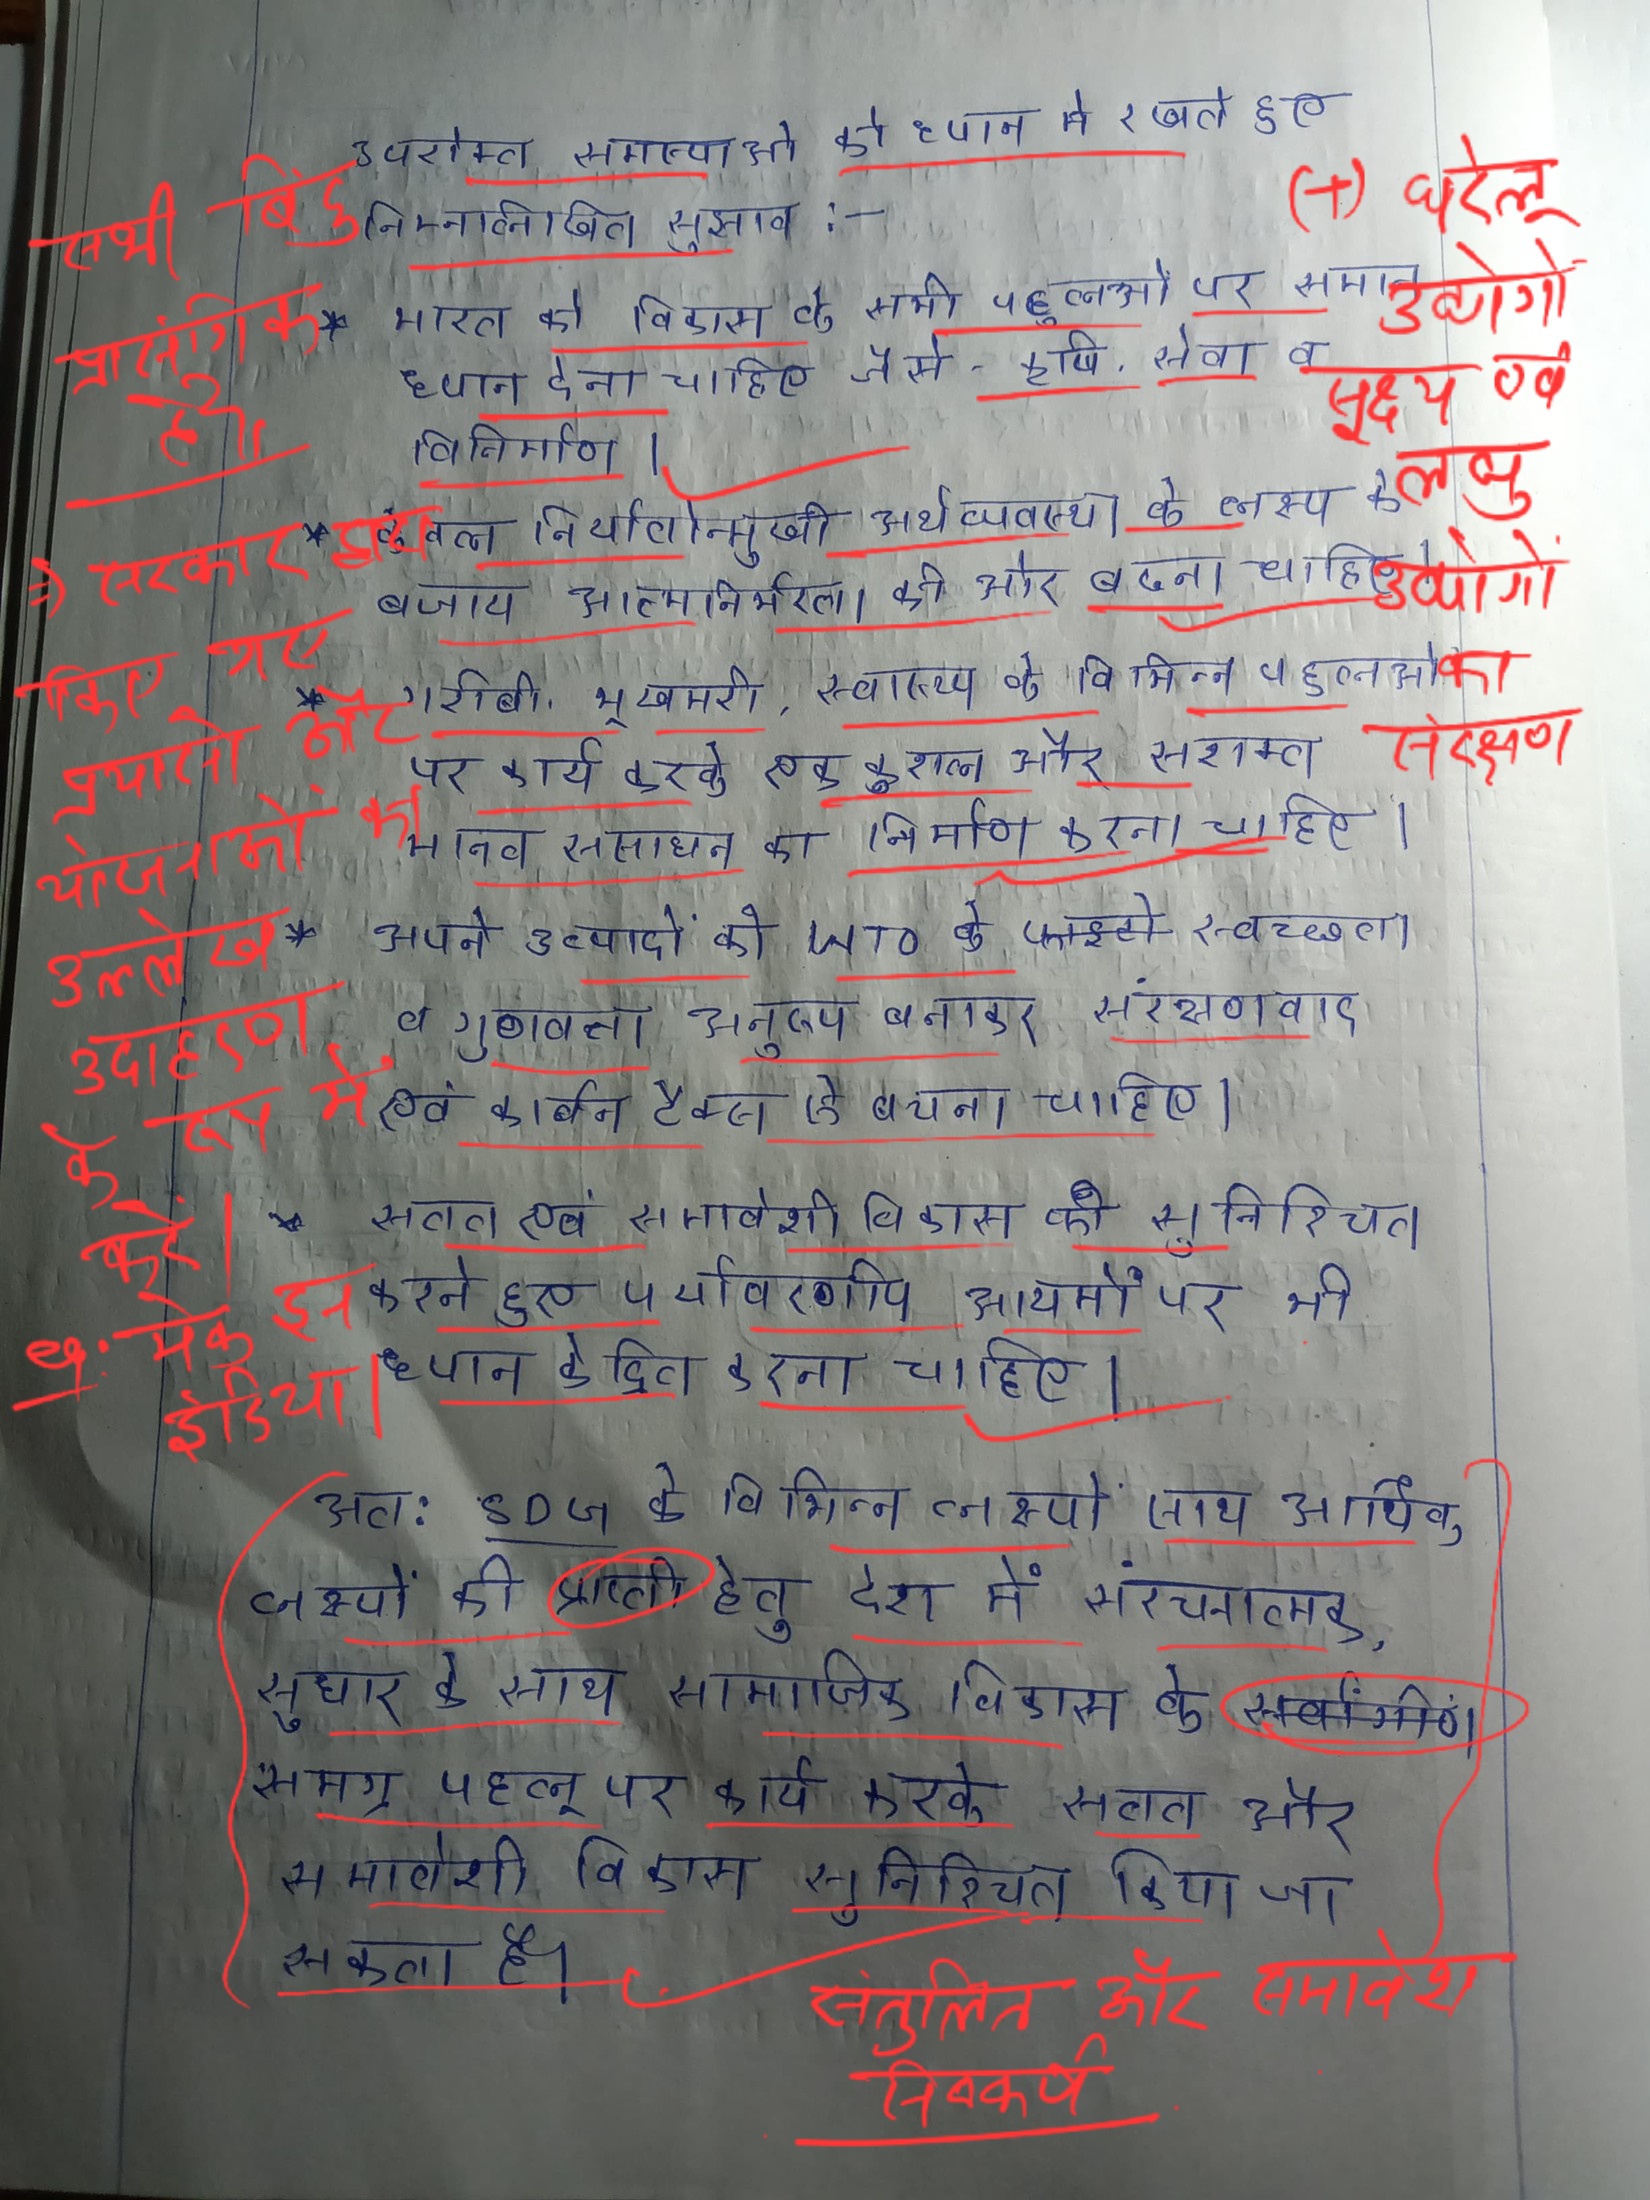 उपरोक्त समस्याओ को ध्यान मे रखते हुए
निम्नलिखित सुझाव :-
* भारत को विकास के सभी पहलुओं पर समान
ध्यान देना चाहिए जैसे - कृषि, सेवा व
विनिर्माण |
* केवल निर्यातोन्मुखी अर्थव्यवस्था के लक्ष्य के
बजाय आत्मनिर्भरता की ओर बढना चाहिए
* गरीबी, भूखमरी, स्वास्थ्य के विभिन्न पहलुओ
पर कार्य करके एक कुशल और सशक्त
मानव संसाधन का निर्माण करना चाहिए |
* अपने उत्पादों को WTO के स्वच्छता
व गुणवत्ता अनुरूप बनाकर संरक्षणवाद
एवं कार्बन टैक्स से बचना चाहिए |
* सतत एवं समावेशी विकास को सुनिश्चित
करने हुए पर्यावरणीय आयमों पर भी
ध्यान केंद्रित करना चाहिए |
अत: SDG के विभिन्न लक्ष्यों साथ आर्थिक
लक्ष्यों की प्राप्ती हेतु देश में संरचनात्मक,
सुधार के साथ सामाजिक विकास के सर्वांगीण
समग्र पहलू पर कार्य करके सतत और
समावेशी विकास सुनिश्चित किया जा
सकता है |
सभी बिंदु
प्रासंगिक
है।
→ सरकार द्वारा
किए गए
प्रयासो और
योजनाओं का
उल्लेख
उदाहरण
के रूप में
करें |
मेक इन
इंडिया |
(+) घरेलू
उद्योगों
सूक्ष्म एवं
लघु
उद्योगों
का
संरक्षण
संतुलित और समावेश
निष्कर्ष